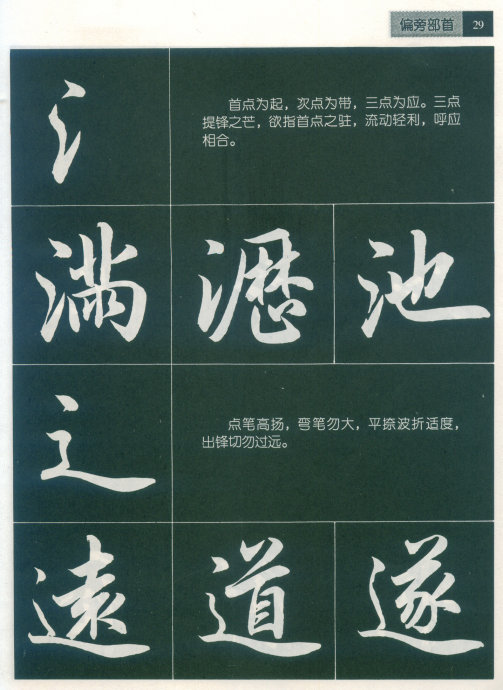 偏旁部首 29
氵
首点为起，次点为带，三点为应。三点
提锋之芒，欲指首点之驻，流动轻利，呼应
相合。
满 瀝 池
辶
点笔高扬，弯笔勿大，平捺波折适度，
出锋切勿过远。
遠 道 遂